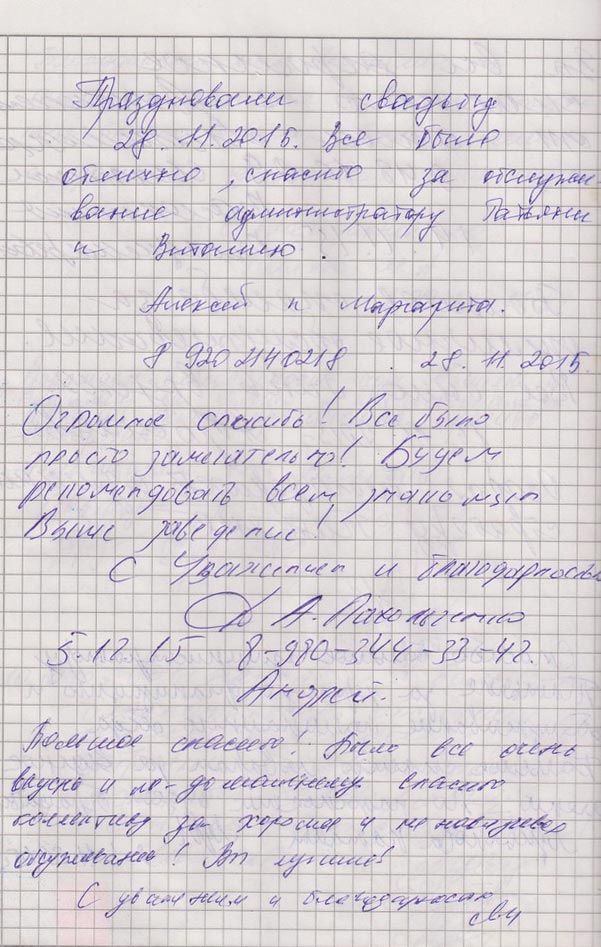 Праздновали свадьбу
28.11.2015. Все было
отлично, спасибо за обслужи-
вание администратору Татьяни
и Виталию.
Алексей и Маргарита.
8 920 2140218 . 28.11.2015
Огромное спасибо! Все было
просто замечательно! Будем
рекомендовать всем знакомым
Ваше заведение!
С Уважением и благодарностью
А.
5.12.15 8-980-344-33-42.
Андрей.
Большое спасибо! Было все очень
вкусно и по-домашнему. спасибо
коллективу за хорошее и не навязчивое
обслуживание! Вы лучшие!
С уважением и благодарностью